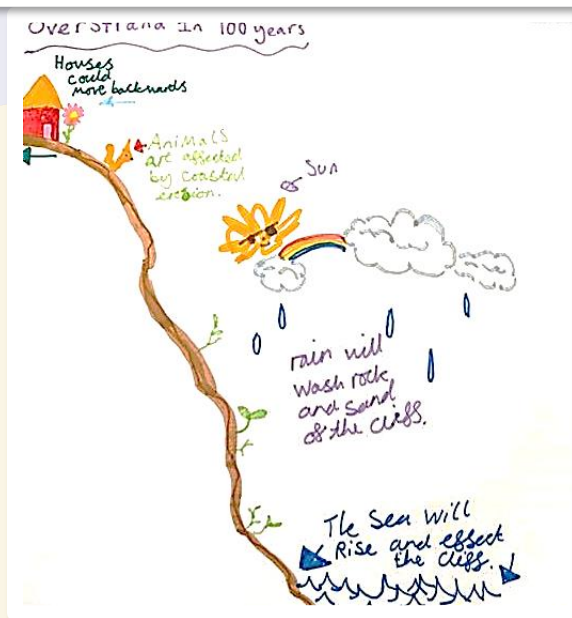 Overstrand In 100 years
Houses
could
move backwards
Animals
are affected
by coastal
erosion.
Sun
rain will
wash rock
and sand
of the cliffs.
The Sea will
Rise and effect
the cliff.